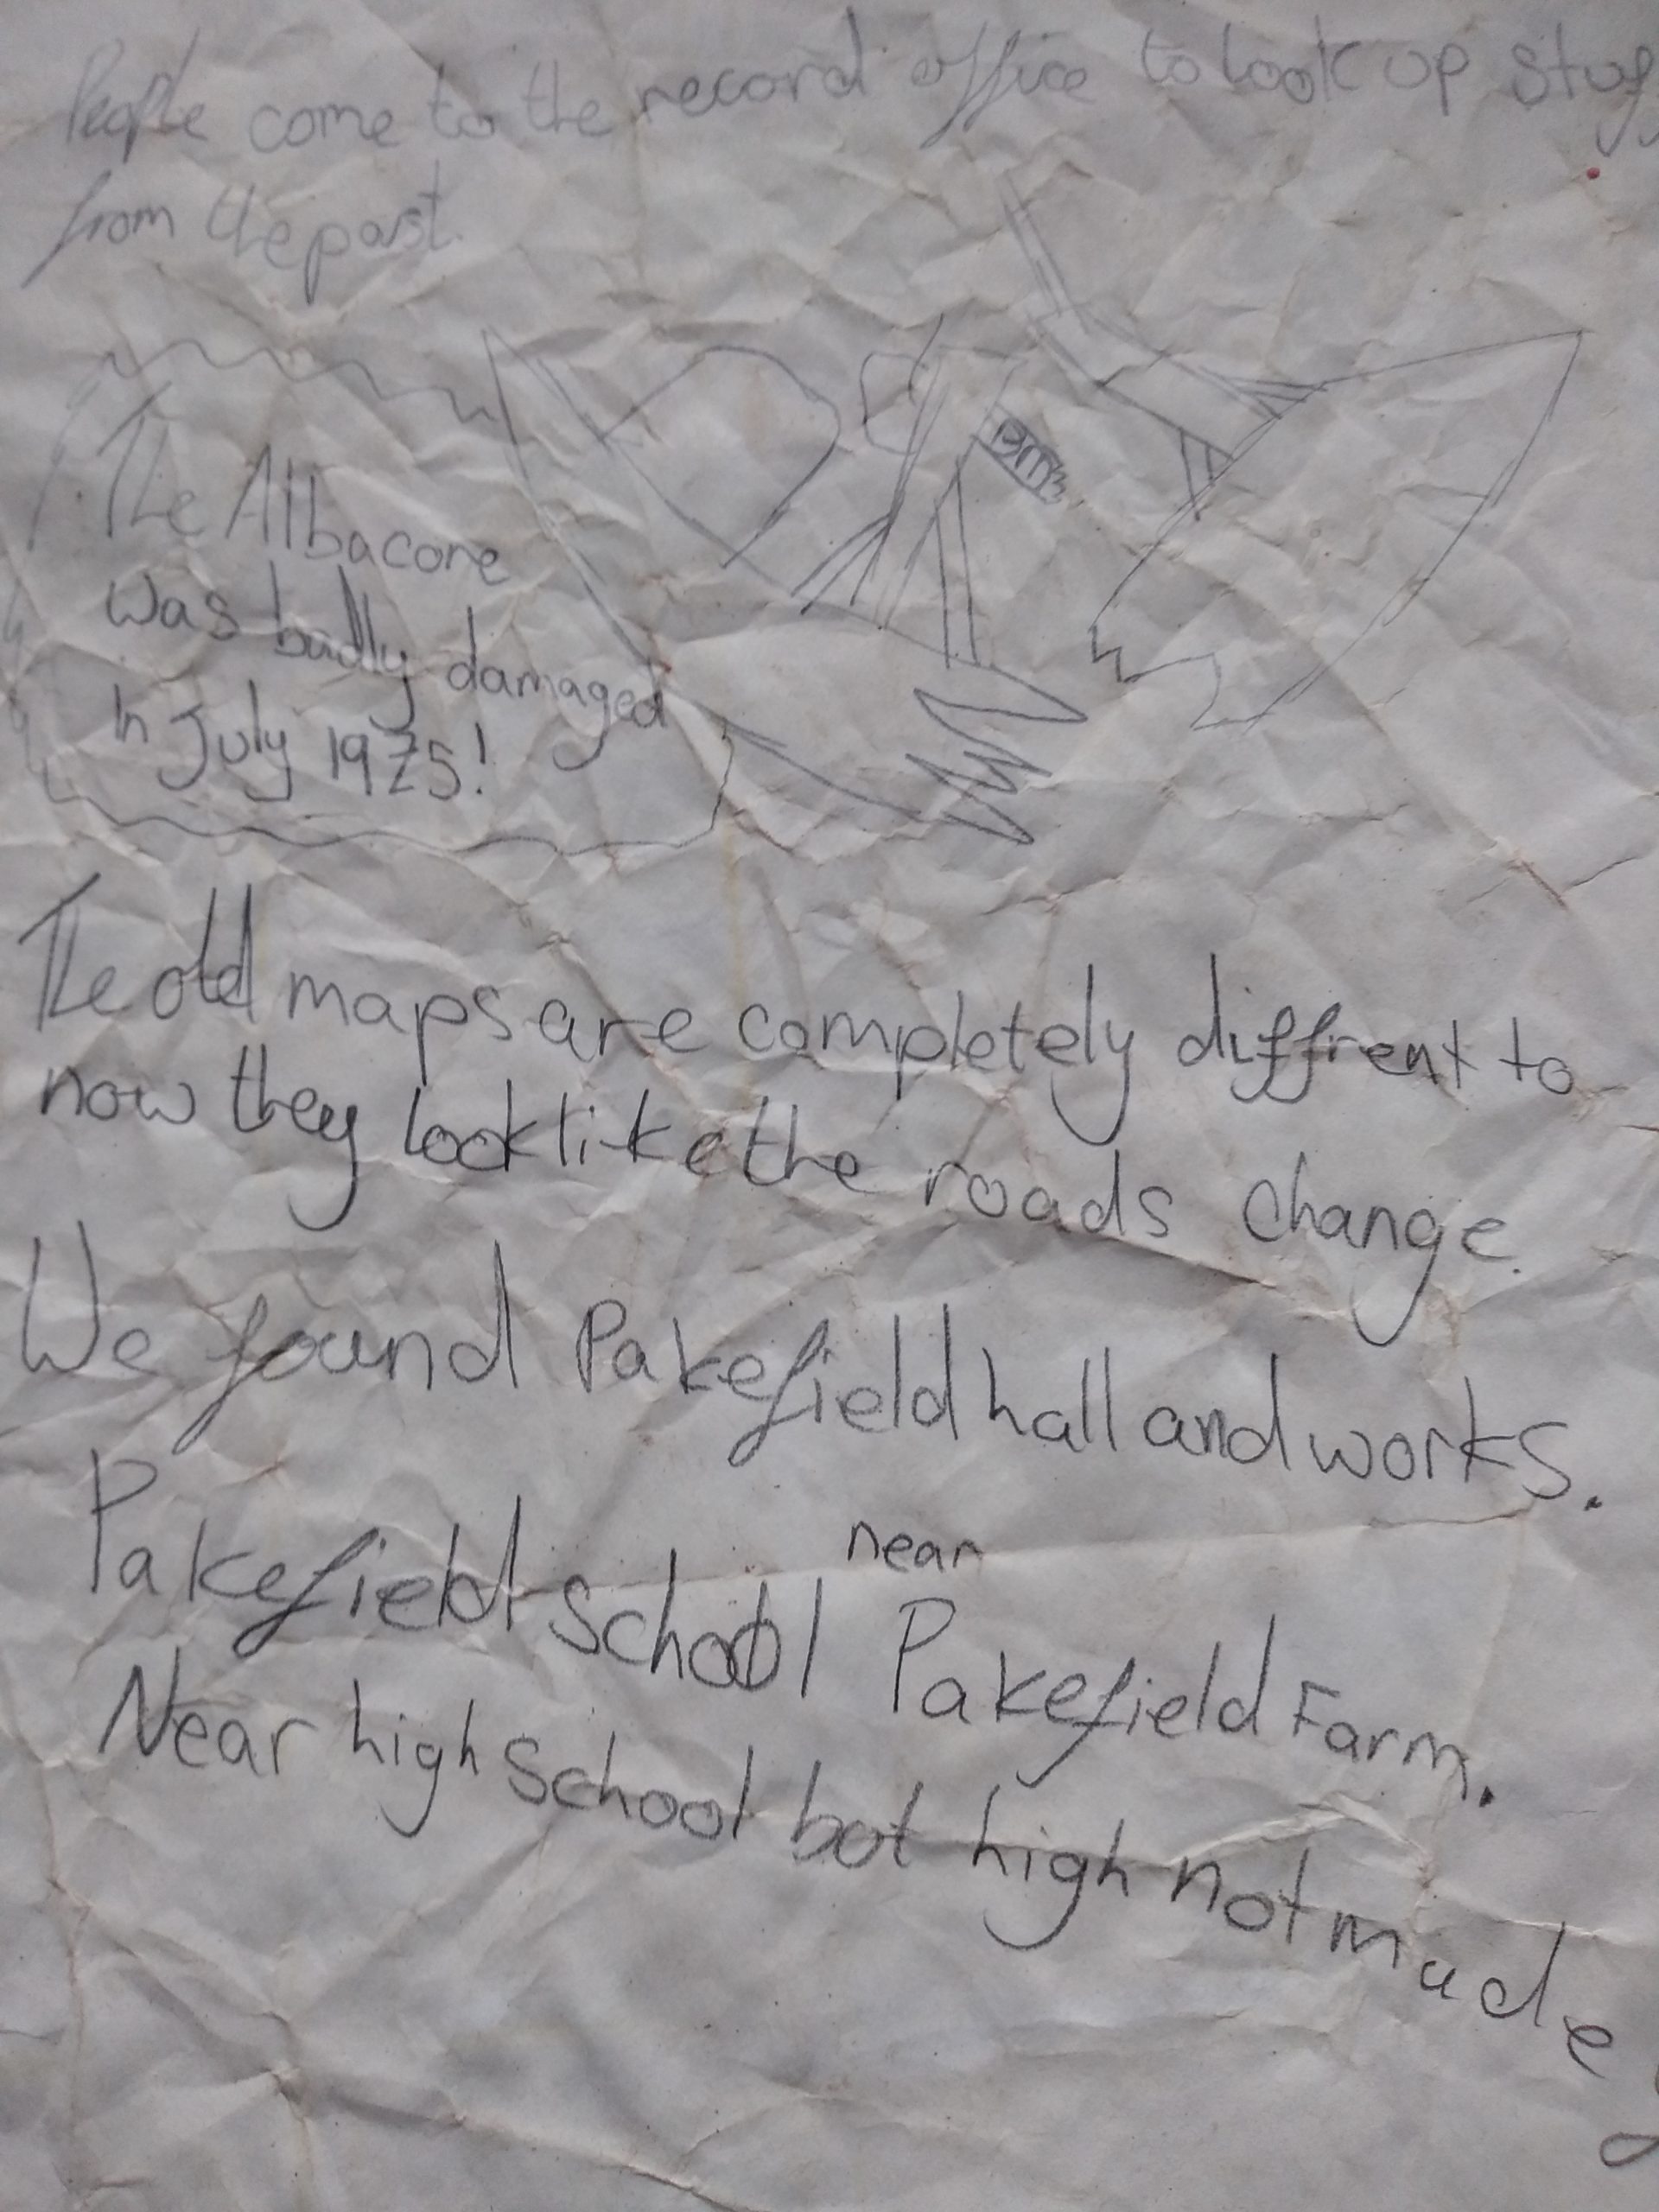 People come to the record office to look up stuff
from the past.
The Albacore
was badly damaged
in July 1975!
The old maps are completely diffrent to
now they look like the roads change.
We found Pakefield hall and works.
near
Pakefield school Pakefield Farm.
Near high school bot high not made